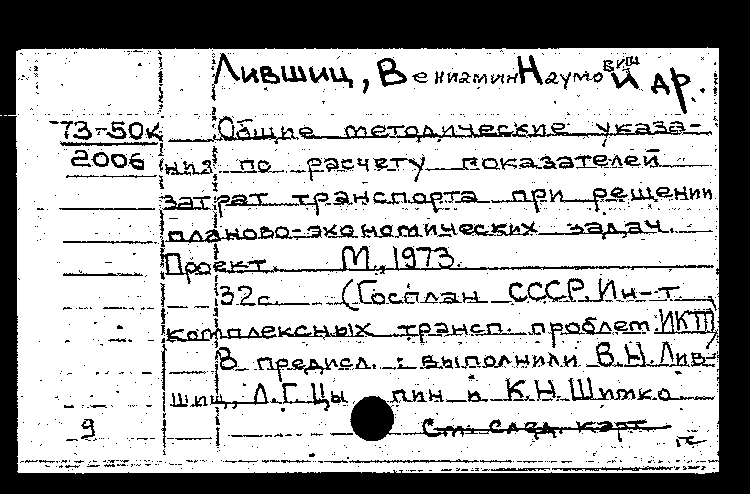 Лившиц, Вениамин Наумович и др.
73-50к Общие методические указа-
2006 ния по расчету показателей
затрат транспорта при решении
планово-экономических задач.
Проект. М., 1973.
32с. (Госплан СССР. Ин-т
комплексных трансп. проблем. ИКТП)
В предисл.: выполнили В.Н. Лив-
шиц, Л.Г. Цыпин и К.Н. Шимко
9 См. след. карт.